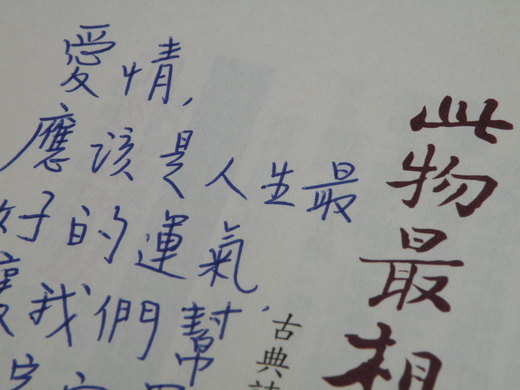 愛情,
應該是人生最
好的運氣.
我們幫
此物最相
古典詩